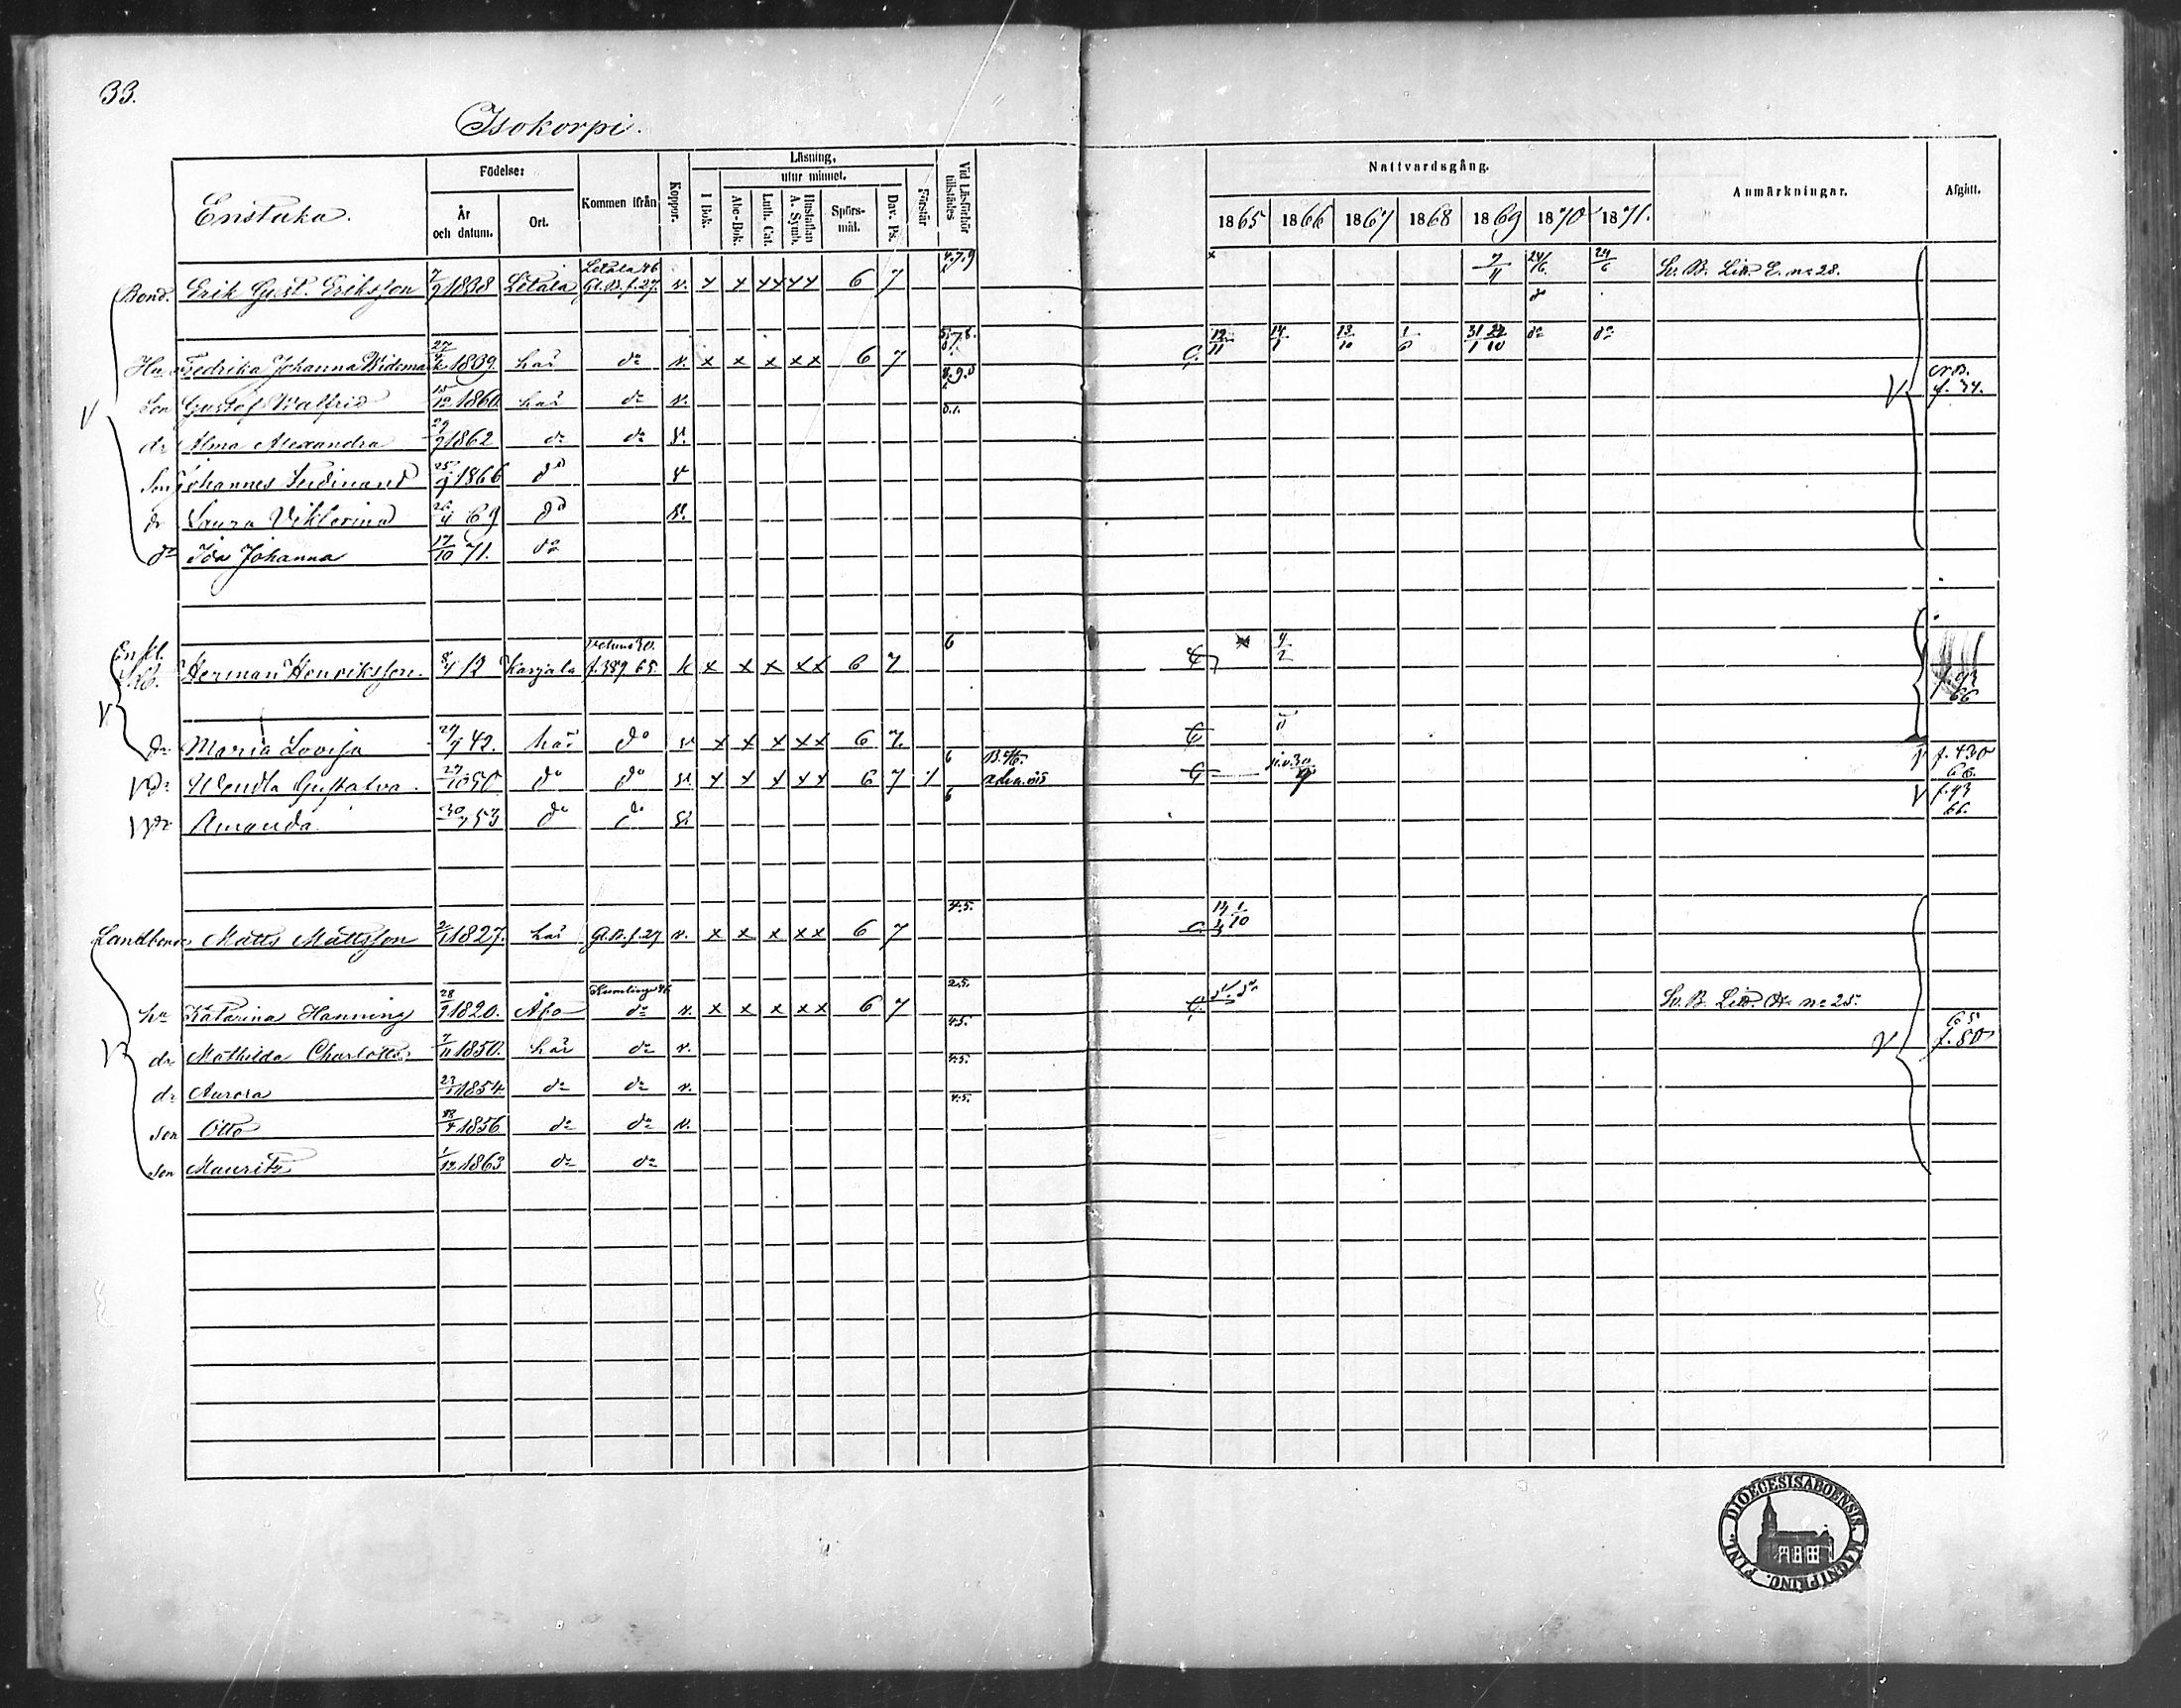 33.
Isokorpi.
Enstaka.
Födelse:
År och datum.
Ort.
Kommen ifrån
Koppor.
Läsning,
utur minnet.
I Bok.
Abc-Bok.
Luth. Cat.
Hustaflan A. Symb.
Spörs-mål.
Dav. Ps.
Förstår
Vid Läsförhör tillstädes
Nattvardsgång.
1865 1866 1867 1868 1869 1870 1871.
Anmärkningar.
Afgått.
Bond. Erik Gust. Eriksson 7/9 1838 Letala Letala 46 Gl.B. f.27. v. x x xx xx 6 7 4.7.9 x 7/11 24/6 24/6 Sv. B. Litt. E. no 28.
Hu Fredrika Johanna Widemark 1839. här do v. x x x x x 6 7 12/11 14/1 13/10 1/6 31/1 24/10 do do
Son Gustaf Walfrid 15/12 1860 här do v. f. 34.
dr Alma Alexandra 29/9 1862 do do v.
Son Johannes Ferdinand 25/9 1866 do v
dr Laura Viktorina 26/4 69 do v.
dr Ida Johanna 17/10 71. do
Herman Henriksson. 8/4 12 Karjala f.389 65. k x x x x x 6 7 6 4/2 f.93 66
dr Maria Lovisa 29/9 42. här do v x x x x x 6 7.
dr Wendla Gustafva. 27/10 50 do do v. x x x x x 6 7 6 f. 430 66.
dr Amanda. 30/7 53 do do v. 6 f.93 66.
Landbonde Matts Mattsson 2/1 1827. här Gl.B. f.27 v. x x x x x 6 7 4.5. 14/4 1/10
hu Katarina Hanning 28/9 1820. Åbo Kumlinge 46 do v. x x x x x 6 7 2.5. do do Sv. B. Litt. no 25.
dr Mathilda Charlotta 7/11 1850. här do v. 4.5. 65 f. 80
dr Aurora 1854. do do v. 4.5.
Son Otto 1856 do do v. 4.5.
Son Mauritz 1/12 1863 do do
DIOECESIS ABOENSIS MAGNI PRINC. FINL.